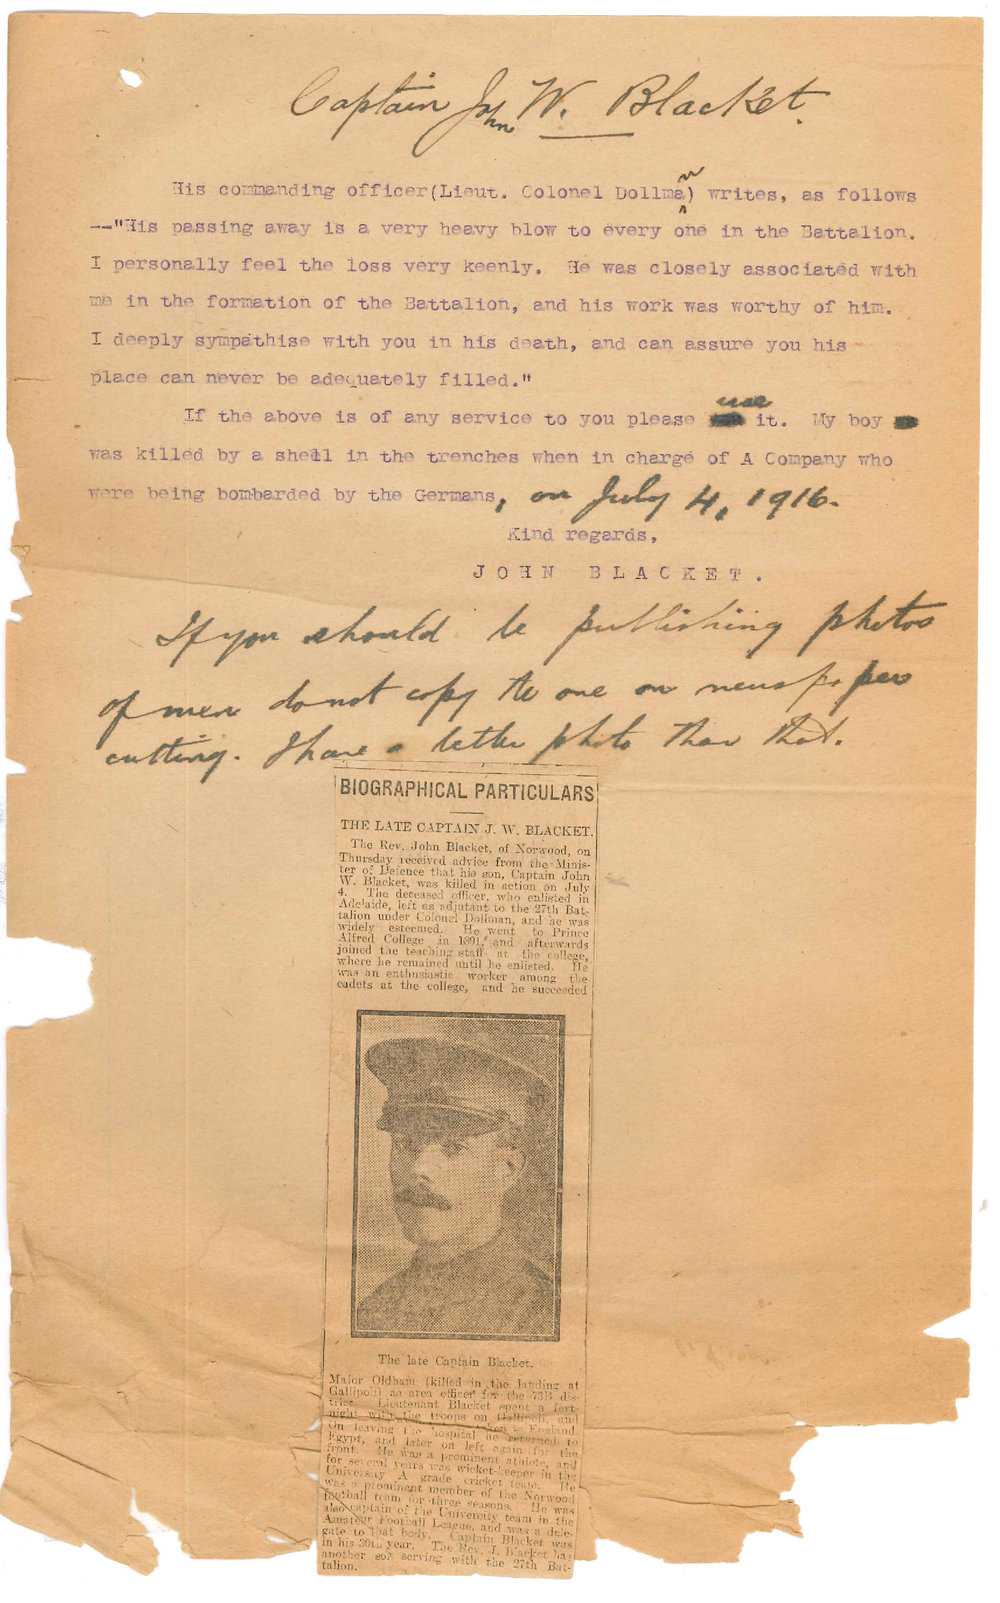 Captain John W. Blacket.
His commanding officer(Lieut. Colonel Dollman) writes, as follows
--"His passing away is a very heavy blow to every one in the Battalion.
I personally feel the loss very keenly. He was closely associated with
me in the formation of the Battalion, and his work was worthy of him.
I deeply sympathise with you in his death, and can assure you his
place can never be adequately filled."
If the above is of any service to you please use it. My boy
was killed by a shell in the trenches when in charge of A Company who
were being bombarded by the Germans, on July 4, 1916.
Kind regards,
JOHN BLACKET.
If you should be publishing photos
of men do not copy the one on newspaper
cutting. I have a better photo than that.
BIOGRAPHICAL PARTICULARS
THE LATE CAPTAIN J. W. BLACKET.
The Rev. John Blacket, of Norwood, on
Thursday received advice from the Minis-
ter of Defence that his son, Captain John
W. Blacket, was killed in action on July
4. The deceased officer, who enlisted in
Adelaide, left as adjutant to the 27th Bat-
talion under Colonel Dollman, and he was
widely esteemed. He went to Prince
Alfred College in 1891, and afterwards
joined the teaching staff at the college,
where he remained until he enlisted. He
was an enthusiastic worker among the
cadets at the college, and he succeeded
The late Captain Blacket.
Major Oldham (killed in the landing at
Gallipoli) as area officer for the 73B dis-
trict. Lieutenant Blacket spent a fort-
night with the troops on Gallipoli, and
taken to England.
On leaving the hospital he returned to
Egypt, and later on left again for the
front. He was a prominent athlete, and
for several years was wicket-keeper in the
University A grade cricket team. He
was a prominent member of the Norwood
football team for three seasons. He was
also captain of the University team in the
Amateur Football League, and was a dele-
gate to that body. Captain Blacket was
in his 36th year. The Rev. J. Blacket has
another son serving with the 27th Bat-
talion.